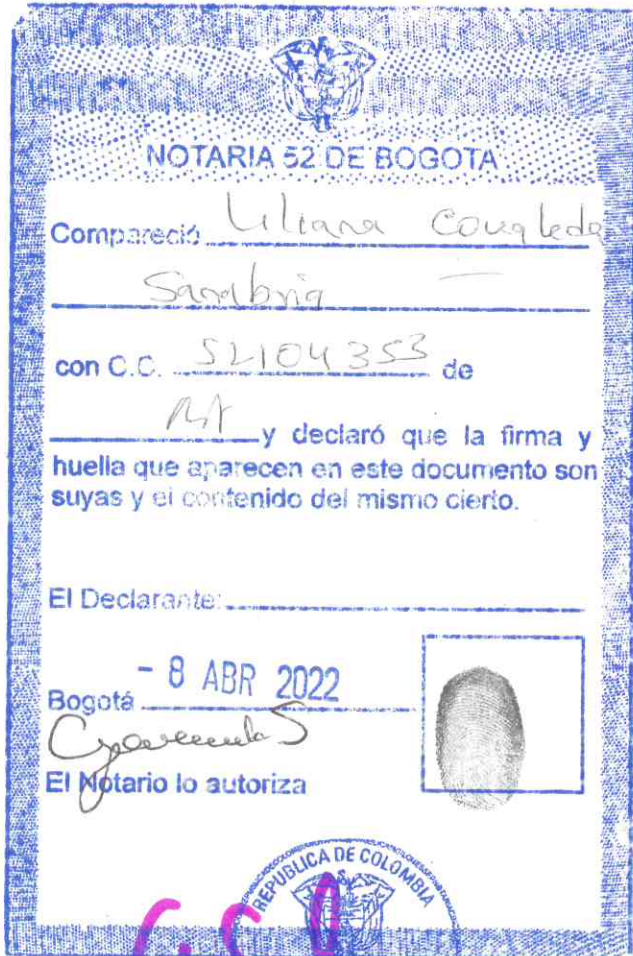 NOTARIA 52 DE BOGOTA
Compareció Liliana
Sanabria
con C.C. 52104353 de
y declaró que la firma y
huella que aparecen en este documento son
suyas y el contenido del mismo cierto.
El Declarante:
- 8 ABR 2022
Bogotá
El Notario lo autoriza
REPUBLICA DE COLOMBIA